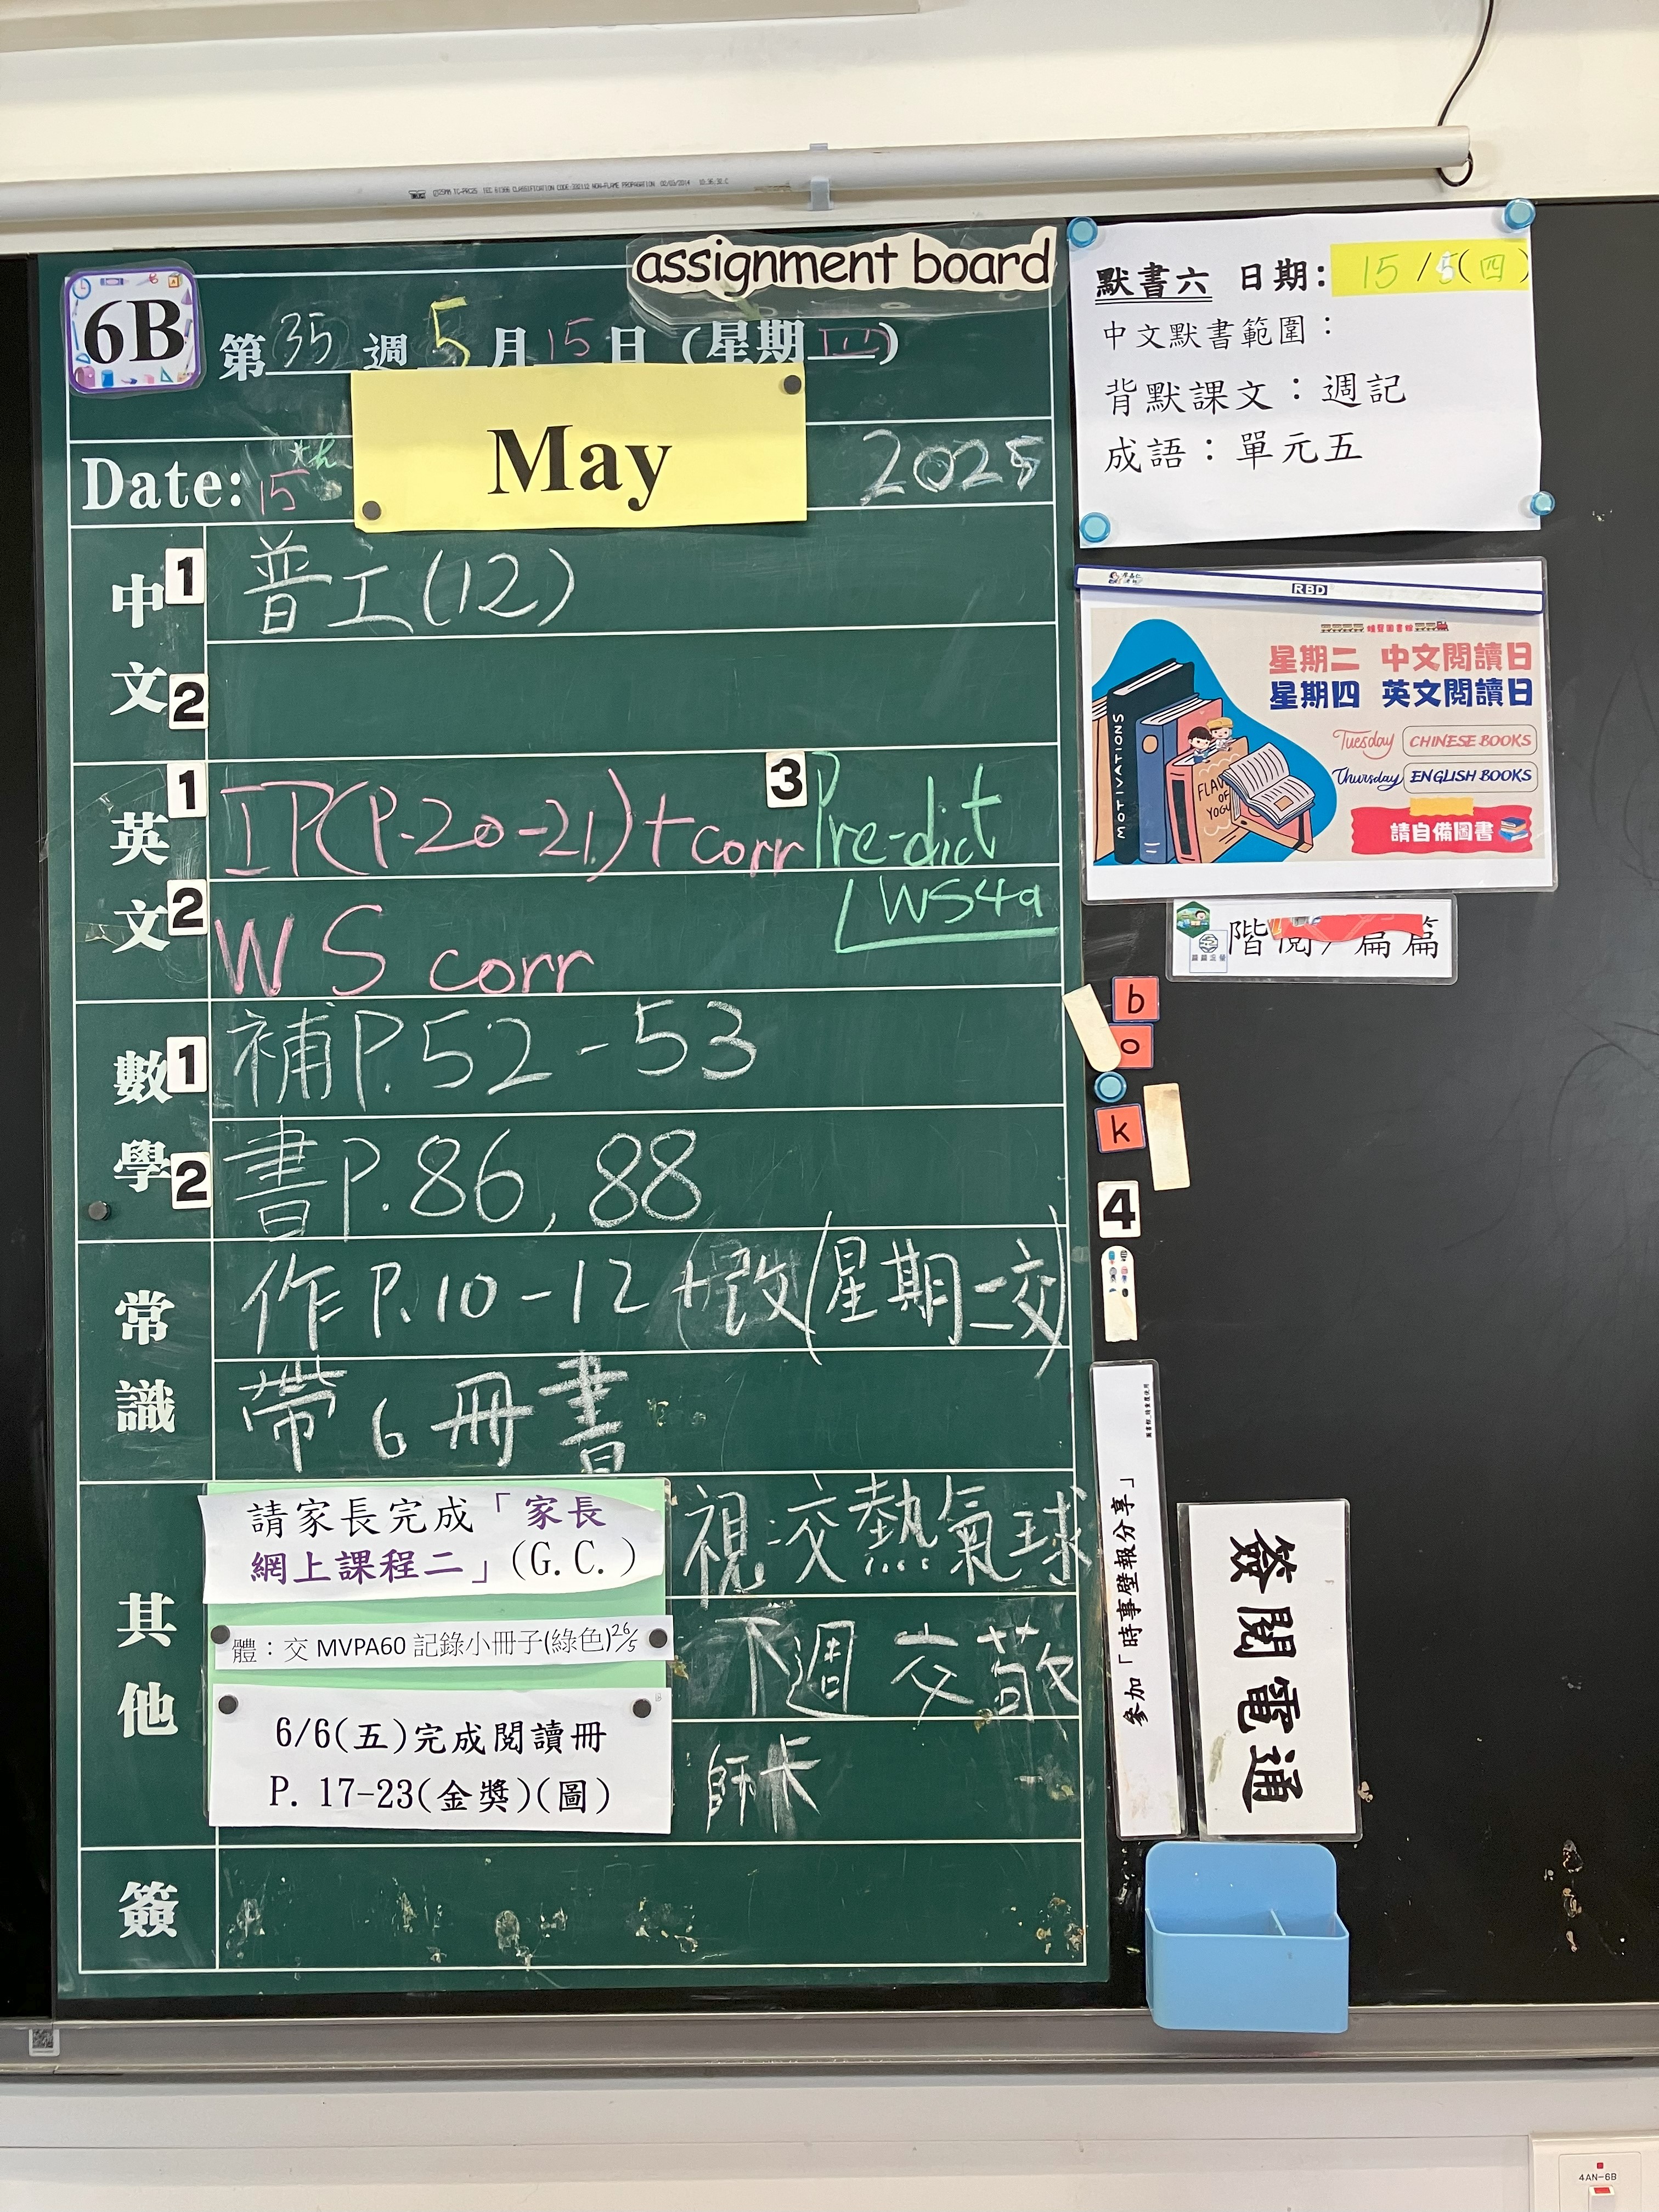 assignment board
6B
第35週5月15日(星期四)
Date: 15th May 2025
中文
1 普工(12)
2
英文
1 IP(P.20-21)+corr
3 Pre-dict
WS4a
2 WS corr
數學
1 補P.52-53
2 書P.86, 88
常識
作P.10-12+改(星期二交)
帶6冊書
其他
請家長完成「家長
網上課程二」(G.C.)
體：交 MVPA60 記錄小冊子(綠色)26/5
6/6(五)完成閱讀冊
P. 17-23(金獎)(圖)
視:交熱氣球
下週交敬
師卡
簽
默書六 日期: 15/5(四)
中文默書範圍：
背默課文：週記
成語：單元五
RBD
星期二 中文閱讀日
星期四 英文閱讀日
Tuesday CHINESE BOOKS
Thursday ENGLISH BOOKS
請自備圖書
MOTIVATIONS
階閱/篇篇
b
o
k
4
參加「時事壁報分享」
簽閱電通
4AN-6B